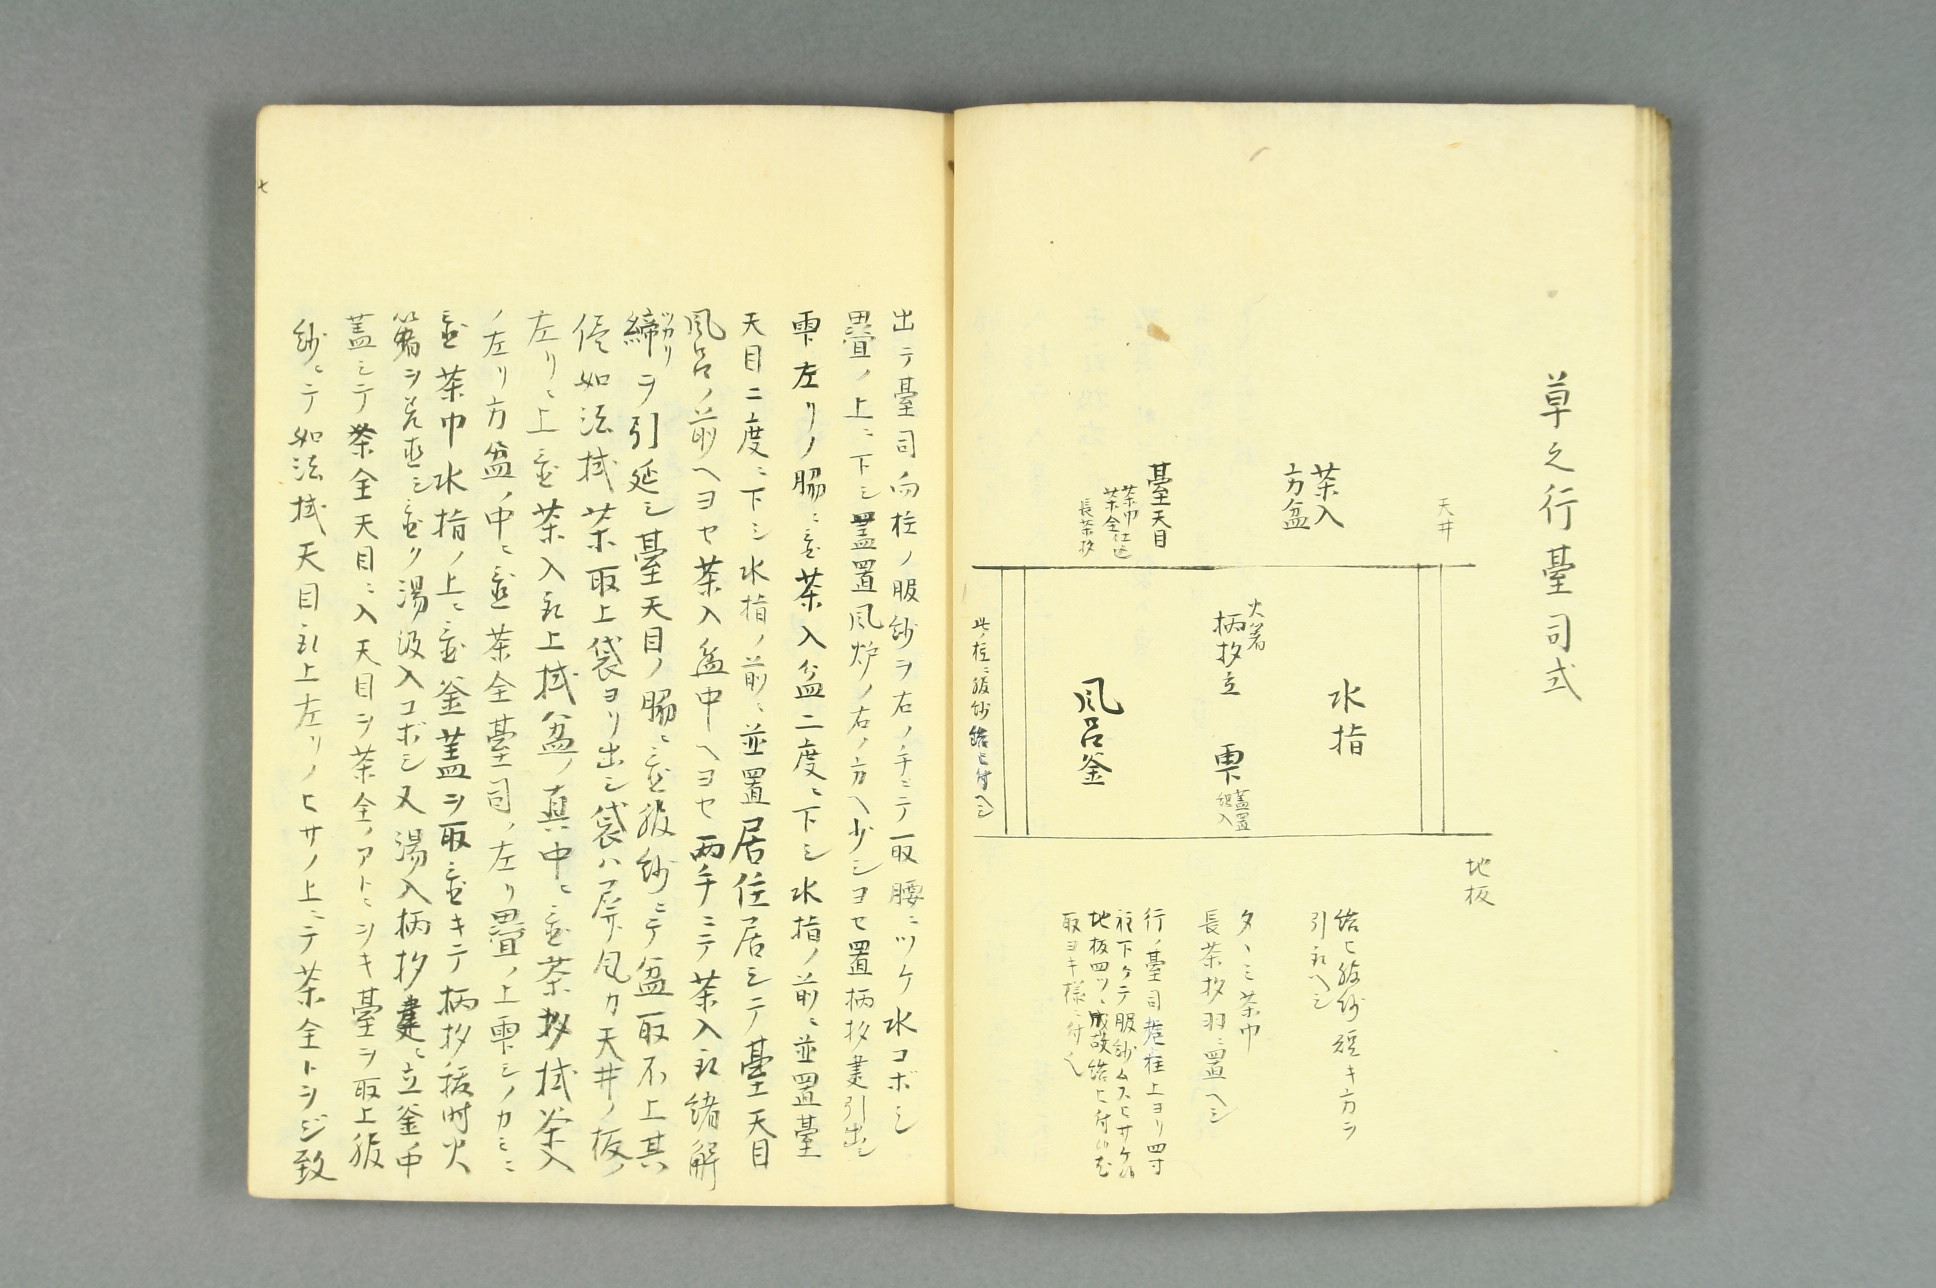 草之行臺司式
天井
茶入
方盆
臺天目
茶巾
茶全仕込
長茶抄
水指
火箸
柄抄立
雫
蓋置
組入
風呂釜
此ノ柱ニ服紗結ヒ付ヘシ
地板
結ヒ服紗短キ方ヲ
引取ヘシ
タヽミ茶巾
長茶抄羽ニ置ヘシ
行ノ臺司 柱上ヨリ四寸
程下ケテ服紗ムスヒサケ
地板四ツニ成故結ヒ付
取ヨキ様ニ付ヘ
出テ臺司向柱ノ服紗ヲ右ノ手ニテ取腰ニツケ水コボシ
畳ノ上ニ下シ蓋置風炉ノ右ノ方ヘ少シヨセ置柄抄 引出シ
雫左リノ脇ニ置茶入盆二度ニ下シ水指ノ前ニ並置臺
天目二度ニ下シ水指ノ前ニ並置居住居シテ臺天目
風呂ノ前ヘヨセ茶入盆中ヘヨセ両手ニテ茶入取緒解
ツカリ
締ヲ引延シ臺天目ノ脇ニ置服紗ニテ盆取不上其
侭如法拭茶取上袋ヨリ出シ袋ハ屏風カ天井ノ板ノ
左リニ上置茶入取上拭盆ノ真中ニ置茶抄拭茶入
ノ左リ方盆ノ中ニ置茶全臺司ノ左リ畳ノ上雫シノカミニ
置茶巾水指ノ上ニ置釜蓋ヲ取置キテ柄抄扱時火
箸ヲ 直シ置ク湯汲入コボシ又湯入柄抄 ニ立釜中
蓋シテ茶全天目ニ入天目ヲ茶全ノアトニツキ臺ヲ取上服
紗ニテ如法拭天目取上左リノヒサノ上ニテ茶全トンジ致
七